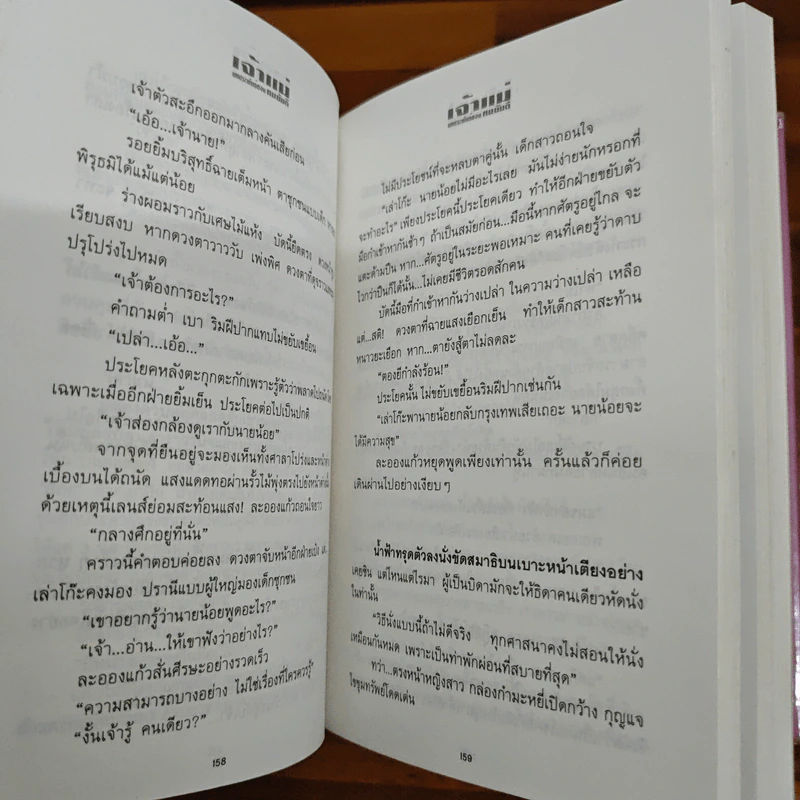 เจ้าแม่
เจ้าตัวสะอึกออกมากลางคันเสียก่อน
“เอ้อ...เจ้านาย!”
รอยยิ้มบริสุทธิ์ฉายเต็มหน้า ตาซุกซนแบบเด็ก
พิรุธมิได้แม้แต่น้อย
ร่างผอมราวกับเศษไม้แห้ง บัดนี้ยืดตรง
เรียบสงบ หากดวงตาวาววับ เพ่งพิศ ดวงตาที่ดูจะ
ปรุโปร่งไปหมด
“เจ้าต้องการอะไร?”
คำถามต่ำ เบา ริมฝีปากแทบไม่ขยับเขยื้อน
“เปล่า...เอ้อ...”
ประโยคหลังตะกุกตะกักเพราะรู้ตัวว่าพลาดไป
เฉพาะเมื่ออีกฝ่ายยิ้มเย็น ประโยคต่อไปเป็นปกติ
“เจ้าส่องกล้องดูเรากับนายน้อย”
จากจุดที่ยืนอยู่จะมองเห็นทั้งศาลาโปร่งและ
เบื้องบนได้ถนัด แสงแดดทอผ่านรั้วไม้พุ่งตรงไปยัง
ด้วยเหตุนี้เลนส์ย่อมสะท้อนแสง! ละอองแก้วถอนใจยาว
“กลางศึกอยู่ที่นั่น”
คราวนี้คำตอบค่อยลง ดวงตาจับหน้าอีกฝ่ายเป๋ง
เล่าโก๊ะคงมอง ปรานีแบบผู้ใหญ่มองเด็กซุกซน
“เขาอยากรู้ว่านายน้อยพูดอะไร?”
“เจ้า...อ่าน...ให้เขาฟังว่าอย่างไร?”
ละอองแก้วสั่นศีรษะอย่างรวดเร็ว
“ความสามารถบางอย่าง ไม่ใช่เรื่องที่ใครควรรู้”
“งั้นเจ้ารู้ คนเดียว?”
158
เจ้าแม่
ไม่มีประโยชน์ที่จะหลบตาคู่นั้น เด็กสาวถอนใจ
“เล่าโก๊ะ นายน้อยไม่มีอะไรเลย มันไม่ง่ายนักหรอกที่
จะทำอะไร” เพียงประโยคนี้ประโยคเดียว ทำให้อีกฝ่ายขยับตัว
มือกำเข้าหากันช้าๆ ถ้าเป็นสมัยก่อน...มือนี้หากศัตรูอยู่ไกล จะ
แตะด้ามปืน หาก...ศัตรูอยู่ในระยะพอเหมาะ คนที่เคยรู้ว่าดาบ
ไวกว่าปืนก็ได้นั้น...ไม่เคยมีชีวิตรอดสักคน
บัดนี้มือที่กำเข้าหากันว่างเปล่า ในความว่างเปล่า เหลือ
แต่...สติ! ดวงตาที่ฉายแสงเยือกเย็น ทำให้เด็กสาวสะท้าน
หนาวยะเยือก หาก...ตายังสู้ตาไม่ลดละ
“ตองยีกำลังร้อน!”
ประโยคนั้น ไม่ขยับเขยื้อนริมฝีปากเช่นกัน
“เล่าโก๊ะพานายน้อยกลับกรุงเทพเสียเถอะ นายน้อยจะ
ได้มีความสุข”
ละอองแก้วหยุดพูดเพียงเท่านั้น ครั้นแล้วก็ค่อย
เดินผ่านไปอย่างเงียบๆ
น้ำฟ้าทรุดตัวลงนั่งขัดสมาธิบนเบาะหน้าเตียงอย่าง
เคยชิน แต่ไหนแต่ไรมา ผู้เป็นบิดามักจะให้ธิดาคนเดียวหัดนั่ง
ในท่านั้น
“วิธีนั่งแบบนี้ถ้าไม่ดีจริง ทุกศาสนาคงไม่สอนให้นั่ง
เหมือนกันหมด เพราะเป็นท่าพักผ่อนที่สบายที่สุด”
ทว่า...ตรงหน้าหญิงสาว กล่องกำมะหยี่เปิดกว้าง กุญแจ
ไขขุมทรัพย์โดดเด่น
159